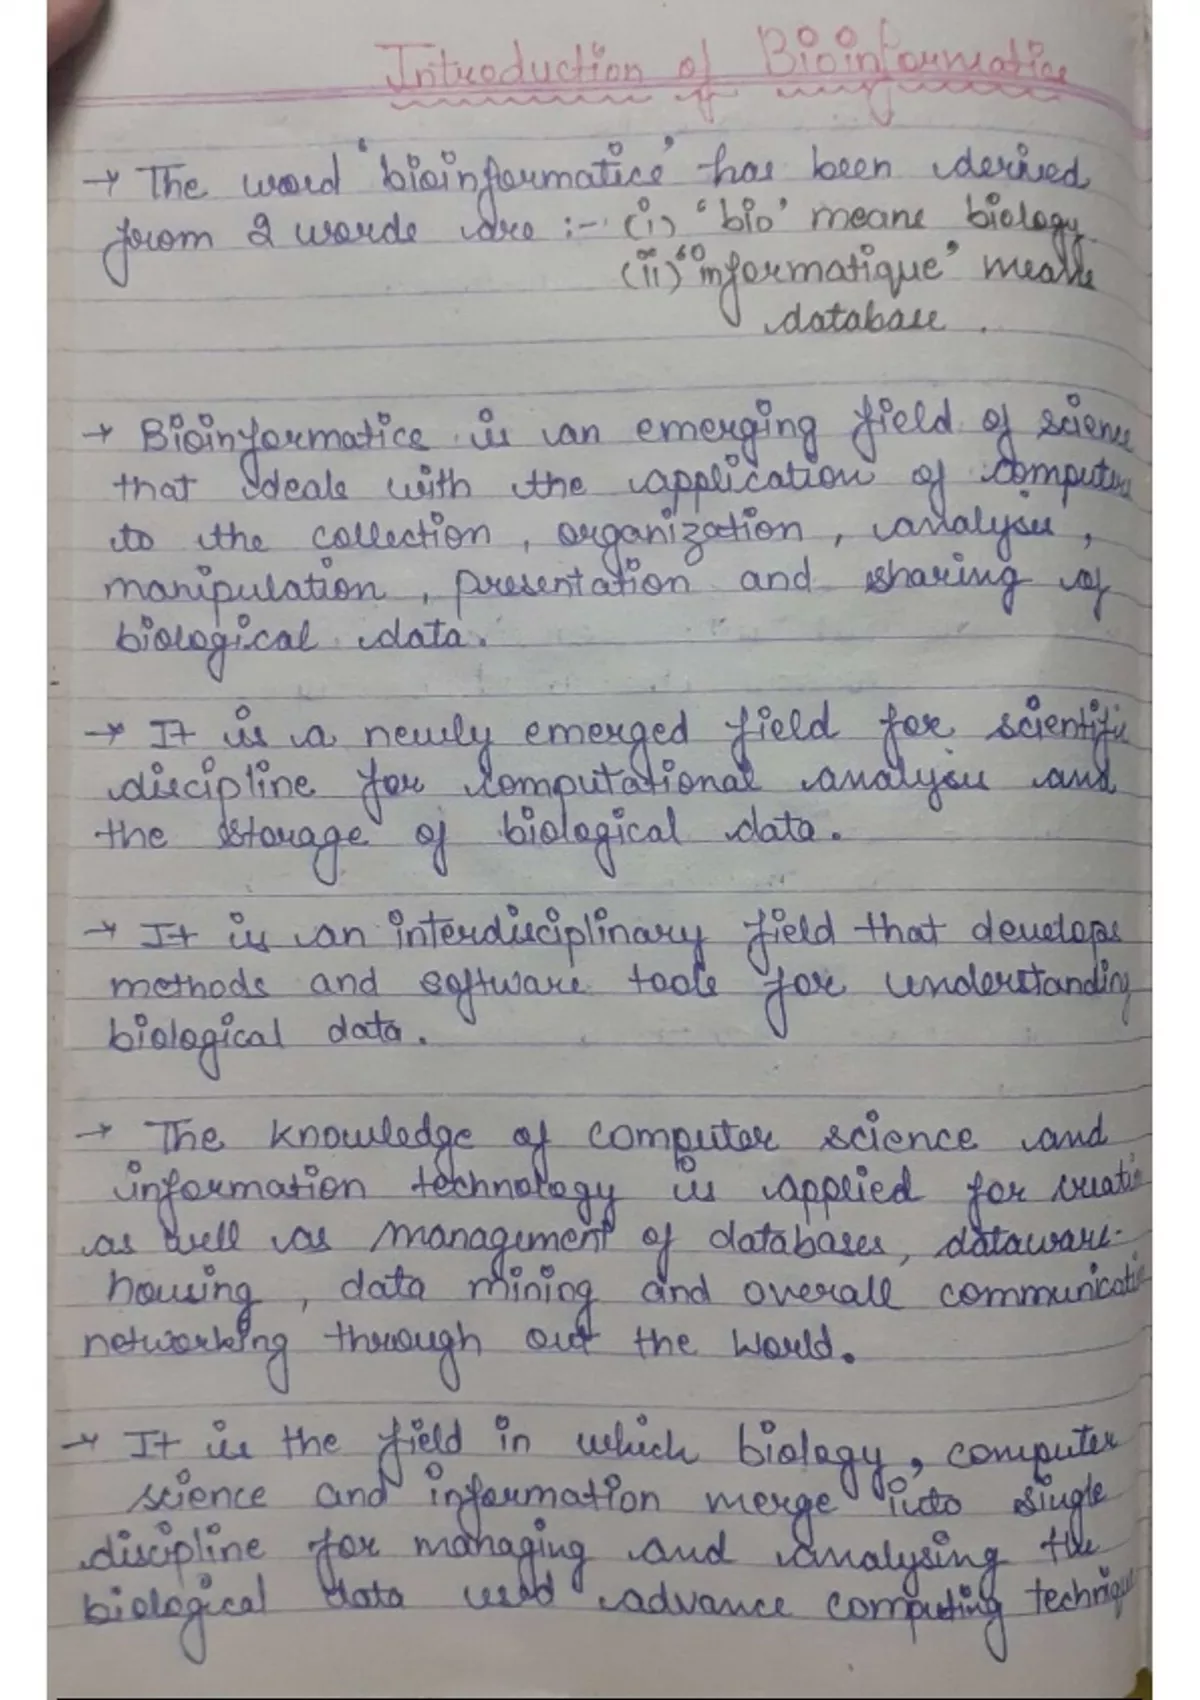 Introduction of Bioinformatics
→ The word 'bioinformatics' has been derived
from 2 words are :- (i) 'bio' means biology
(ii) 'informatique' means
database.
→ Bioinformatics is an emerging field of science
that deals with the application of computer
to the collection, organization, analysis,
manipulation, presentation and sharing of
biological data.
→ It is a newly emerged field for scientific
discipline for computational analysis and
the storage of biological data.
→ It is an interdisciplinary field that develops
methods and software tools for understanding
biological data.
→ The knowledge of computer science and
information technology is applied for creatin
as well as management of databases, dataware-
housing, data mining and overall communicatio
networking through out the world.
→ It is the field in which biology, computer
science and information merge into single
discipline for managing and analysing the
biological data used advance computing techniqu